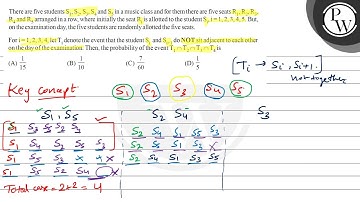 There are five students S₁, S₂, S₃, S₄ and S₅ in a music class and for them there are five seats R₁, R₂, R₃,
R₄ and R₅ arranged in a row, where initially the seat Rᵢ is allotted to the student Sᵢ, i = 1, 2, 3, 4, 5. But,
on the examination day, the five students are randomly allotted the five seats.
For i = 1, 2, 3, 4, let Tᵢ denote the event that the students Sᵢ and Sᵢ₊₁ do NOT sit adjacent to each other
on the day of the examination. Then, the probability of the event T₁ ∩ T₂ ∩ T₃ ∩ T₄ is
(A) 1/15 (B) 1/10 (C) 7/60 (D) 1/5
[Tᵢ → Sᵢ, Sᵢ₊₁.]
not together
Key concept
S₁ S₂ S₃ S₄ S₅
S₁, S₅ S₂ S₄ S₃
S₁ S₄ S₂ S₅ S₃
S₂ S₄ S₁ S₅ S₃
S₂ S₅ S₃ S₁ X
S₁ S₅ S₃ X X X
S₁ S₅ S₂ S₄ X
S₂ S₄ S₁ S₃ S₅
Total case = 2+2 = 4